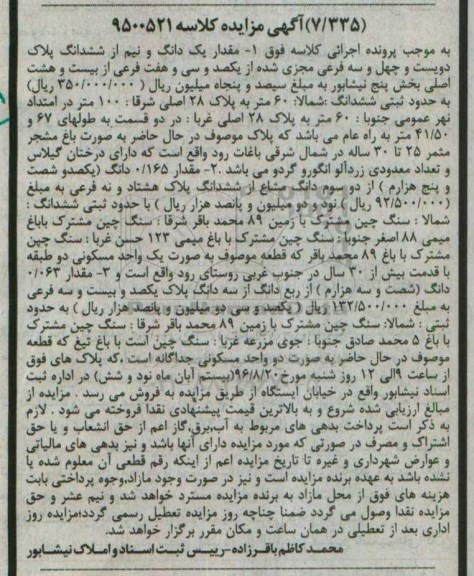 (۷/۳۳۵)آگهی مزایده کلاسه ۹۵۰۰۵۲۱
به موجب پرونده اجرائی کلاسه فوق ۱- مقدار یک دانگ و نیم از ششدانگ پلاک
دویست و چهل و سه فرعی مجزی شده از یکصد و سی و هفت فرعی از بیست و هشت
اصلی بخش پنج نیشابور به مبلغ سیصد و پنجاه میلیون ریال (۳۵۰/۰۰۰/۰۰۰ ریال)
به حدود ثبتی ششدانگ :شمالا: ۶۰ متر به پلاک ۲۸ اصلی شرقا : ۱۰۰ متر در امتداد
نهر عمومی جنوبا : ۶۰ متر به پلاک ۲۸ اصلی غربا : در دو قسمت به طولهای ۶۷ و
۴۱/۵۰ متر به راه عام می باشد که پلاک موصوف در حال حاضر به صورت باغ مشجر
مثمر ۲۵ تا ۳۰ ساله در شمال شرقی باغات رود واقع است که دارای درختان گیلاس
و تعداد معدودی زردآلو انگورو گردو می باشد .۲- مقدار ۰/۱۶۵ دانگ (یکصدو شصت
و پنج هزارم ) از دو سوم دانگ مشاع از ششدانگ پلاک هشتاد و نه فرعی به مبلغ
(۹۲/۵۰۰/۰۰۰ ریال ) نود و دو میلیون و پانصد هزار ریال ) با حدود ثبتی ششدانگ :
شمالا : سنگ چین مشترک با زمین ۸۹ محمد باقر شرقا : سنگ چین مشترک باباغ
میمی ۸۸ اصغر جنوبا : سنگ چین مشترک با باغ میمی ۱۲۳ حسن غربا : سنگ چین
مشترک با باغ ۸۹ محمد باقر که قطعه موصوف به صورت یک واحد مسکونی دو طبقه
با قدمت بیش از ۳۰ سال در جنوب غربی روستای رود واقع است و ۳- مقدار ۰/۰۶۳
دانگ (شصت و سه هزارم ) از ربع دانگ از سه دانگ پلاک یکصد و بیست و سه فرعی
به مبلغ ۱۳۲/۵۰۰/۰۰۰ ریال ( یکصد و سی دو میلیون و پانصد هزار ریال ) به حدود
ثبتی : شمالا: سنگ چین مشترک با زمین ۸۹ محمد باقر شرقا : سنگ چین مشترک
با باغ ۵ محمد صادق جنوبا : جوی مزرعه غربا : سنگ چین است با باغ تیغ که قطعه
موصوف در حال حاضر به صورت دو واحد مسکونی جداگانه است ،که پلاک های فوق
از ساعت ۹الی ۱۲ روز شنبه مورخ۹۶/۸/۲۰(بیستم آبان ماه نود و شش) در اداره ثبت
اسناد نیشابور واقع در خیابان ایستگاه از طریق مزایده به فروش می رسد . مزایده از
مبالغ ارزیابی شده شروع و به بالاترین قیمت پیشنهادی نقدا فروخته می شود . لازم
به ذکر است پرداخت بدهی های مربوط به آب،برق،گاز اعم از حق انشعاب و یا حق
اشتراک و مصرف در صورتی که مورد مزایده دارای آنها باشد و نیز بدهی های مالیاتی
و عوارض شهرداری و غیره تا تاریخ مزایده اعم از اینکه رقم قطعی آن معلوم شده یا
نشده باشد به عهده برنده مزایده است و نیز در صورت وجود مازاد،وجوه پرداختی بابت
هزینه های فوق از محل مازاد به برنده مزایده مسترد خواهد شد و نیم عشر و حق
مزایده نقدا وصول می گردد ضمنا چنانچه روز مزایده تعطیل رسمی گردد؛مزایده روز
اداری بعد از تعطیلی در همان ساعت و مکان مقرر برگزار خواهد شد.
محمد کاظم باقرزاده-رییس ثبت اسناد و املاک نیشابور